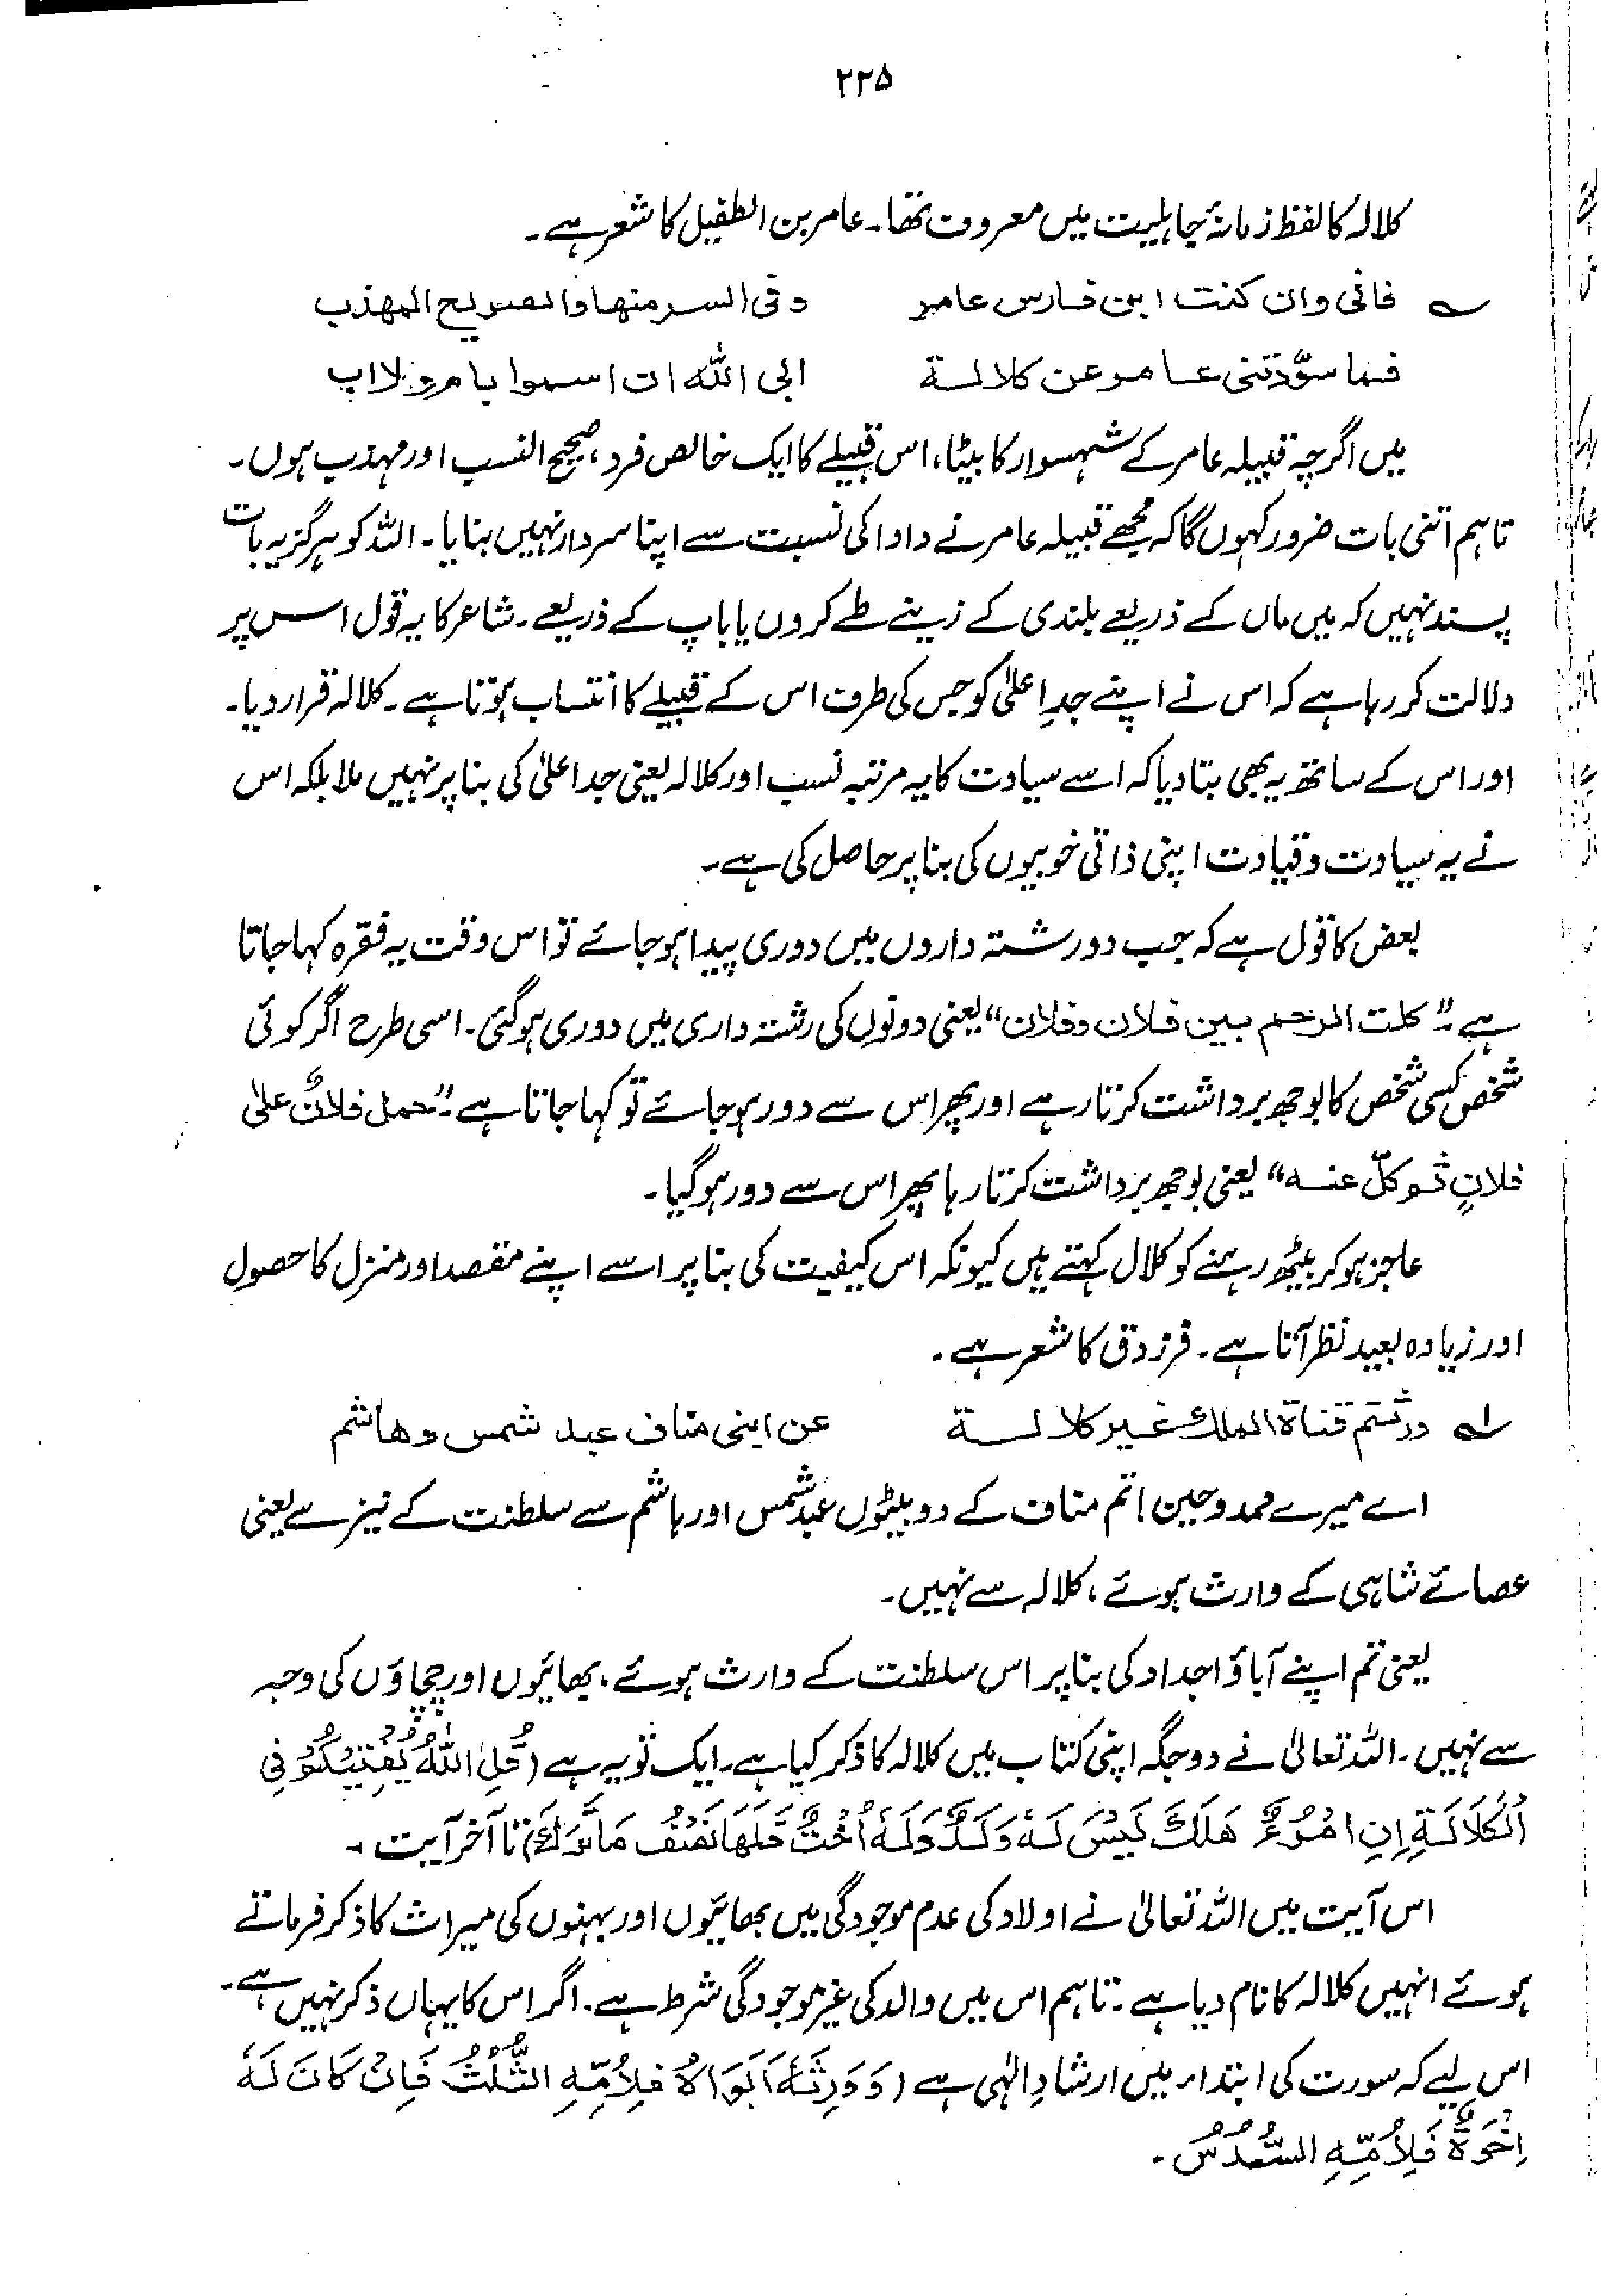 ۲۲۵
کلالہ کا لفظ زمانۂ جاہلیت میں معروف تھا۔ عامر بن الطفیل کا شعر ہے۔
فانی وان کنت ابن فارس عامر وفی السر منھا والصریح المھذب
فما سوّدتنی عامر عن کلالۃ ابی اللہ ان اسموا بام ولا اب
میں اگرچہ قبیلہ عامر کے شہسوار کا بیٹا، اس قبیلے کا ایک خالص فرد، صحیح النسب اور مہذب ہوں۔
تاہم اتنی بات ضرور کہوں گا کہ مجھے قبیلہ عامر نے دادا کی نسبت سے اپنا سردار نہیں بنایا۔ اللہ کو ہرگز یہ بات
پسند نہیں کہ میں ماں کے ذریعے بلندی کے زینے طے کروں یا باپ کے ذریعے۔ شاعر کا یہ قول اس پر
دلالت کر رہا ہے کہ اس نے اپنے جدِ اعلیٰ کو جس کی طرف اس کے قبیلے کا انتساب ہوتا ہے۔ کلالہ قرار دیا۔
اور اس کے ساتھ یہ بھی بتا دیا کہ اسے سیادت کا یہ مرتبہ نسب اور کلالہ یعنی جد اعلیٰ کی بنا پر نہیں ملا بلکہ اس
نے یہ سیادت و قیادت اپنی ذاتی خوبیوں کی بنا پر حاصل کی ہے۔
بعض کا قول ہے کہ جب دو رشتہ داروں میں دوری پیدا ہو جائے تو اس وقت یہ فقرہ کہا جاتا
ہے۔"کلت الرحم بین فلان وفلان" یعنی دونوں کی رشتہ داری میں دوری ہو گئی۔ اسی طرح اگر کوئی
شخص کسی شخص کا بوجھ برداشت کرتا رہے اور پھر اس سے دور ہو جائے تو کہا جاتا ہے۔"حمل فلانٌ علیٰ
فلانٍ ثم کلّ عنہ" یعنی بوجھ برداشت کرتا رہا پھر اس سے دور ہو گیا۔
عاجز ہو کر بیٹھ رہنے کو کلال کہتے ہیں کیونکہ اس کیفیت کی بنا پر اسے اپنے مقصد اور منزل کا حصول
اور زیادہ بعید نظر آتا ہے۔ فرزدق کا شعر ہے۔
ورثتم قناۃ الملک غیر کلالۃ عن ابنی مناف عبد شمس وھاشم
اے میرے ممدوحین! تم مناف کے دو بیٹوں عبد شمس اور ہاشم سے سلطنت کے نیزے یعنی
عصائے شاہی کے وارث ہوئے، کلالہ سے نہیں۔
یعنی تم اپنے آباؤ اجداد کی بنا پر اس سلطنت کے وارث ہوئے، بھائیوں اور چچاؤں کی وجہ
سے نہیں۔ اللہ تعالیٰ نے دو جگہ اپنی کتاب میں کلالہ کا ذکر کیا ہے۔ ایک تو یہ ہے (قُلِ اللّٰهُ يُفْتِيْكُمْ فِي
الْكَلَالَةِ اِنِ امْرُؤٌ هَلَكَ لَيْسَ لَهٗ وَلَدٌ وَلَهٗ اُخْتٌ فَلَهَا نِصْفُ مَا تَرَكَ) تا آخر آیت۔
اس آیت میں اللہ تعالیٰ نے اولاد کی عدم موجودگی میں بھائیوں اور بہنوں کی میراث کا ذکر فرماتے
ہوئے انہیں کلالہ کا نام دیا ہے۔ تاہم اس میں والد کی غیر موجودگی شرط ہے۔ اگر اس کا یہاں ذکر نہیں ہے۔
اس لیے کہ سورت کی ابتداء میں ارشادِ الٰہی ہے (وَوَرِثَهٗ اَبَوَاهُ فَلِاُمِّهِ الثُّلُثُ فَاِنْ كَانَ لَهٗ
اِخْوَةٌ فَلِاُمِّهِ السُّدُسُ۔